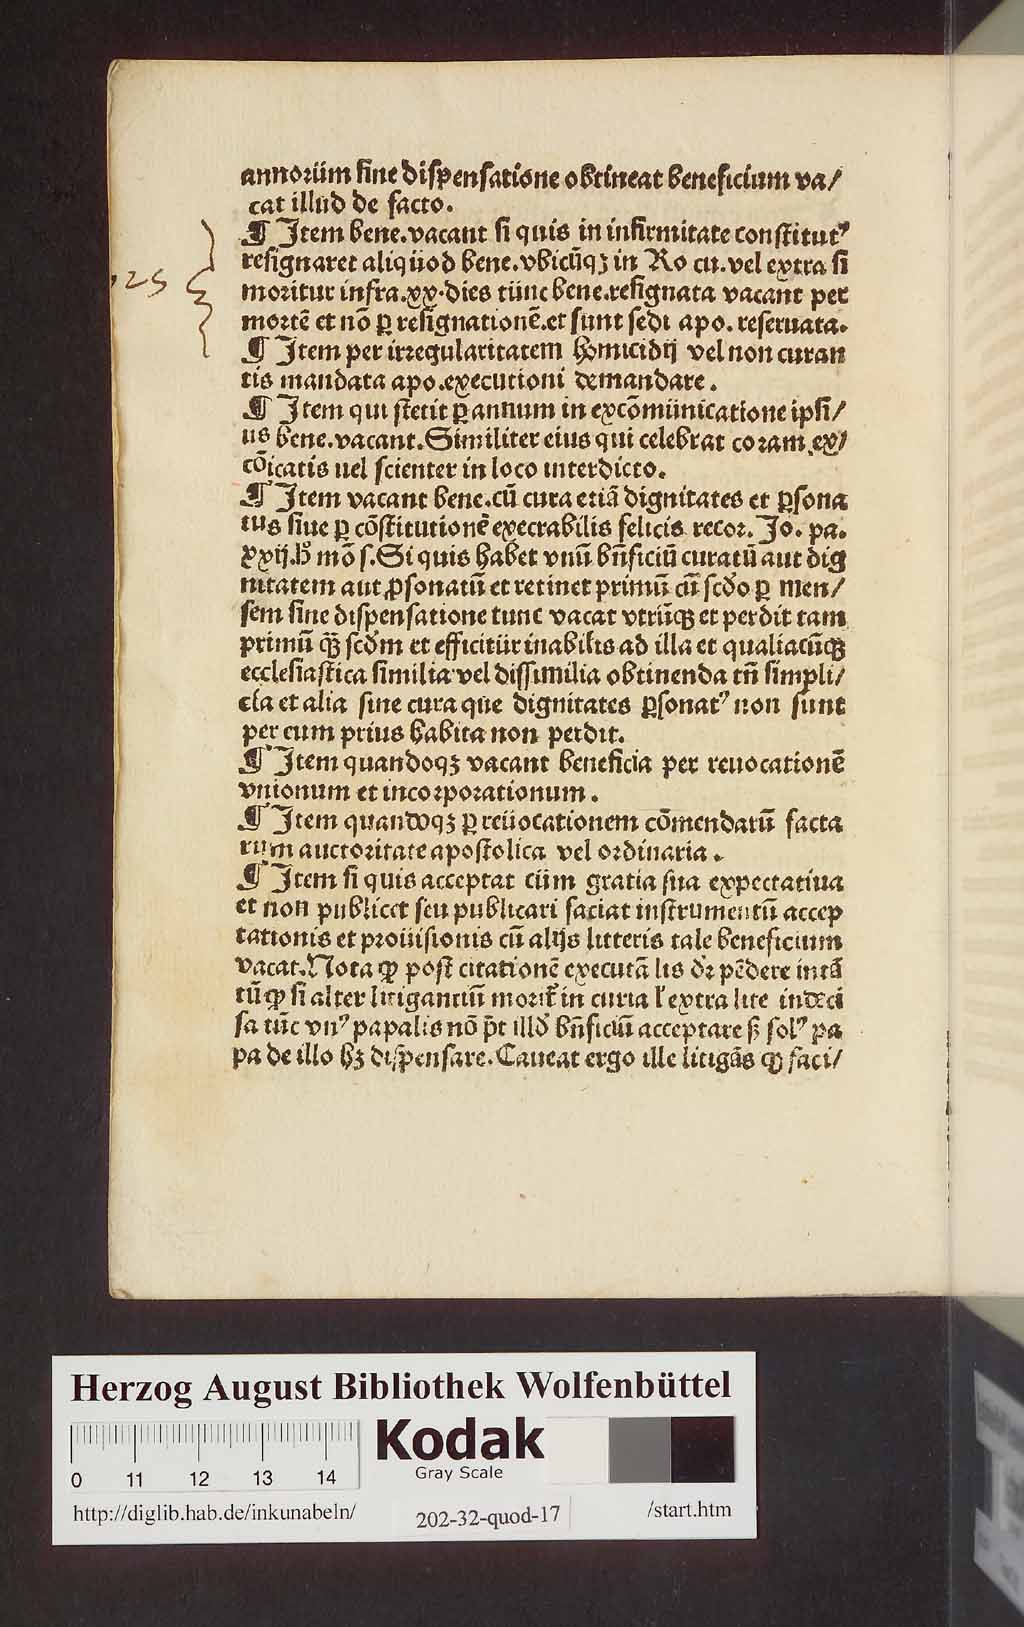 annorüm sine dispensatione obtineat beneficium va/
cat illud de facto.
¶ Item bene.vacant si quis in infirmitate constitutꝰ
resignaret aliqüod bene.vbicũqꝫ in Ro cu.vel extra si
25
moritur infra.xx.dies tünc bene.resignata vacant per
mortẽ et nõ ꝑ resignationẽ.et sunt sedi apo. reseruata.
¶ Item per irregularitatem homicidij vel non curan
tis mandata apo.executioni demandare.
¶ Item qui stetit ꝑ annum in excõmünicatione ipsi/
us bene.vacant.Similiter eius qui celebrat coram ex/
cõicatis uel scienter in loco interdicto.
¶ Item vacant bene.cũ cura etiã dignitates et ꝑsona
tus siue ꝑ cõstitutionẽ execrabilis felicis recor. Jo. pa.
xxij.h̕ mõ s.Si quis habet vnũ bñficiũ curatũ aut dig
nitatem aut ꝑsonatũ et retinet primũ cũ scďo ꝑ men/
sem sine dispensatione tunc vacat vtrũqꝫ et perdit tam
primũ qꝫ̃ scďm et efficitür inabilis ad illa et qualiacũqꝫ
ecclesiastica similia vel dissimilia obtinenda tñ simpli/
cia et alia sine cura que dignitates ꝑsonatꝰ non sunt
per cum prius habita non perdit.
¶ Item quandoqꝫ vacant beneficia per reuocationẽ
vnionum et incorporationum.
¶ Item quandoqꝫ ꝑ reüocationem cõmendarũ facta
rum auctoritate apostolica vel ordinaria.
¶ Item si quis acceptat cüm gratia sua expectatiua
et non publicet seu publicari faciat instrumentũ accep
tationis et proüisionis cũ alijs litteris tale beneficium
vacat.Nota ꝙ post citationẽ executã lis dr̃ pẽdere intã
tũꝙ si alter litigantiũ morit̃ in curia l̕ extra lite indeci
sa tũc vnꝰ papalis nõ p̃t illď bñficiũ acceptare sꝫ solꝰ pa
pa de illo hꝫ dispensare.Caueat ergo ille litigãs ꝙ faci/
Herzog August Bibliothek Wolfenbüttel
0 11 12 13 14
Kodak
Gray Scale
http://diglib.hab.de/inkunabeln/ 202-32-quod-17 /start.htm